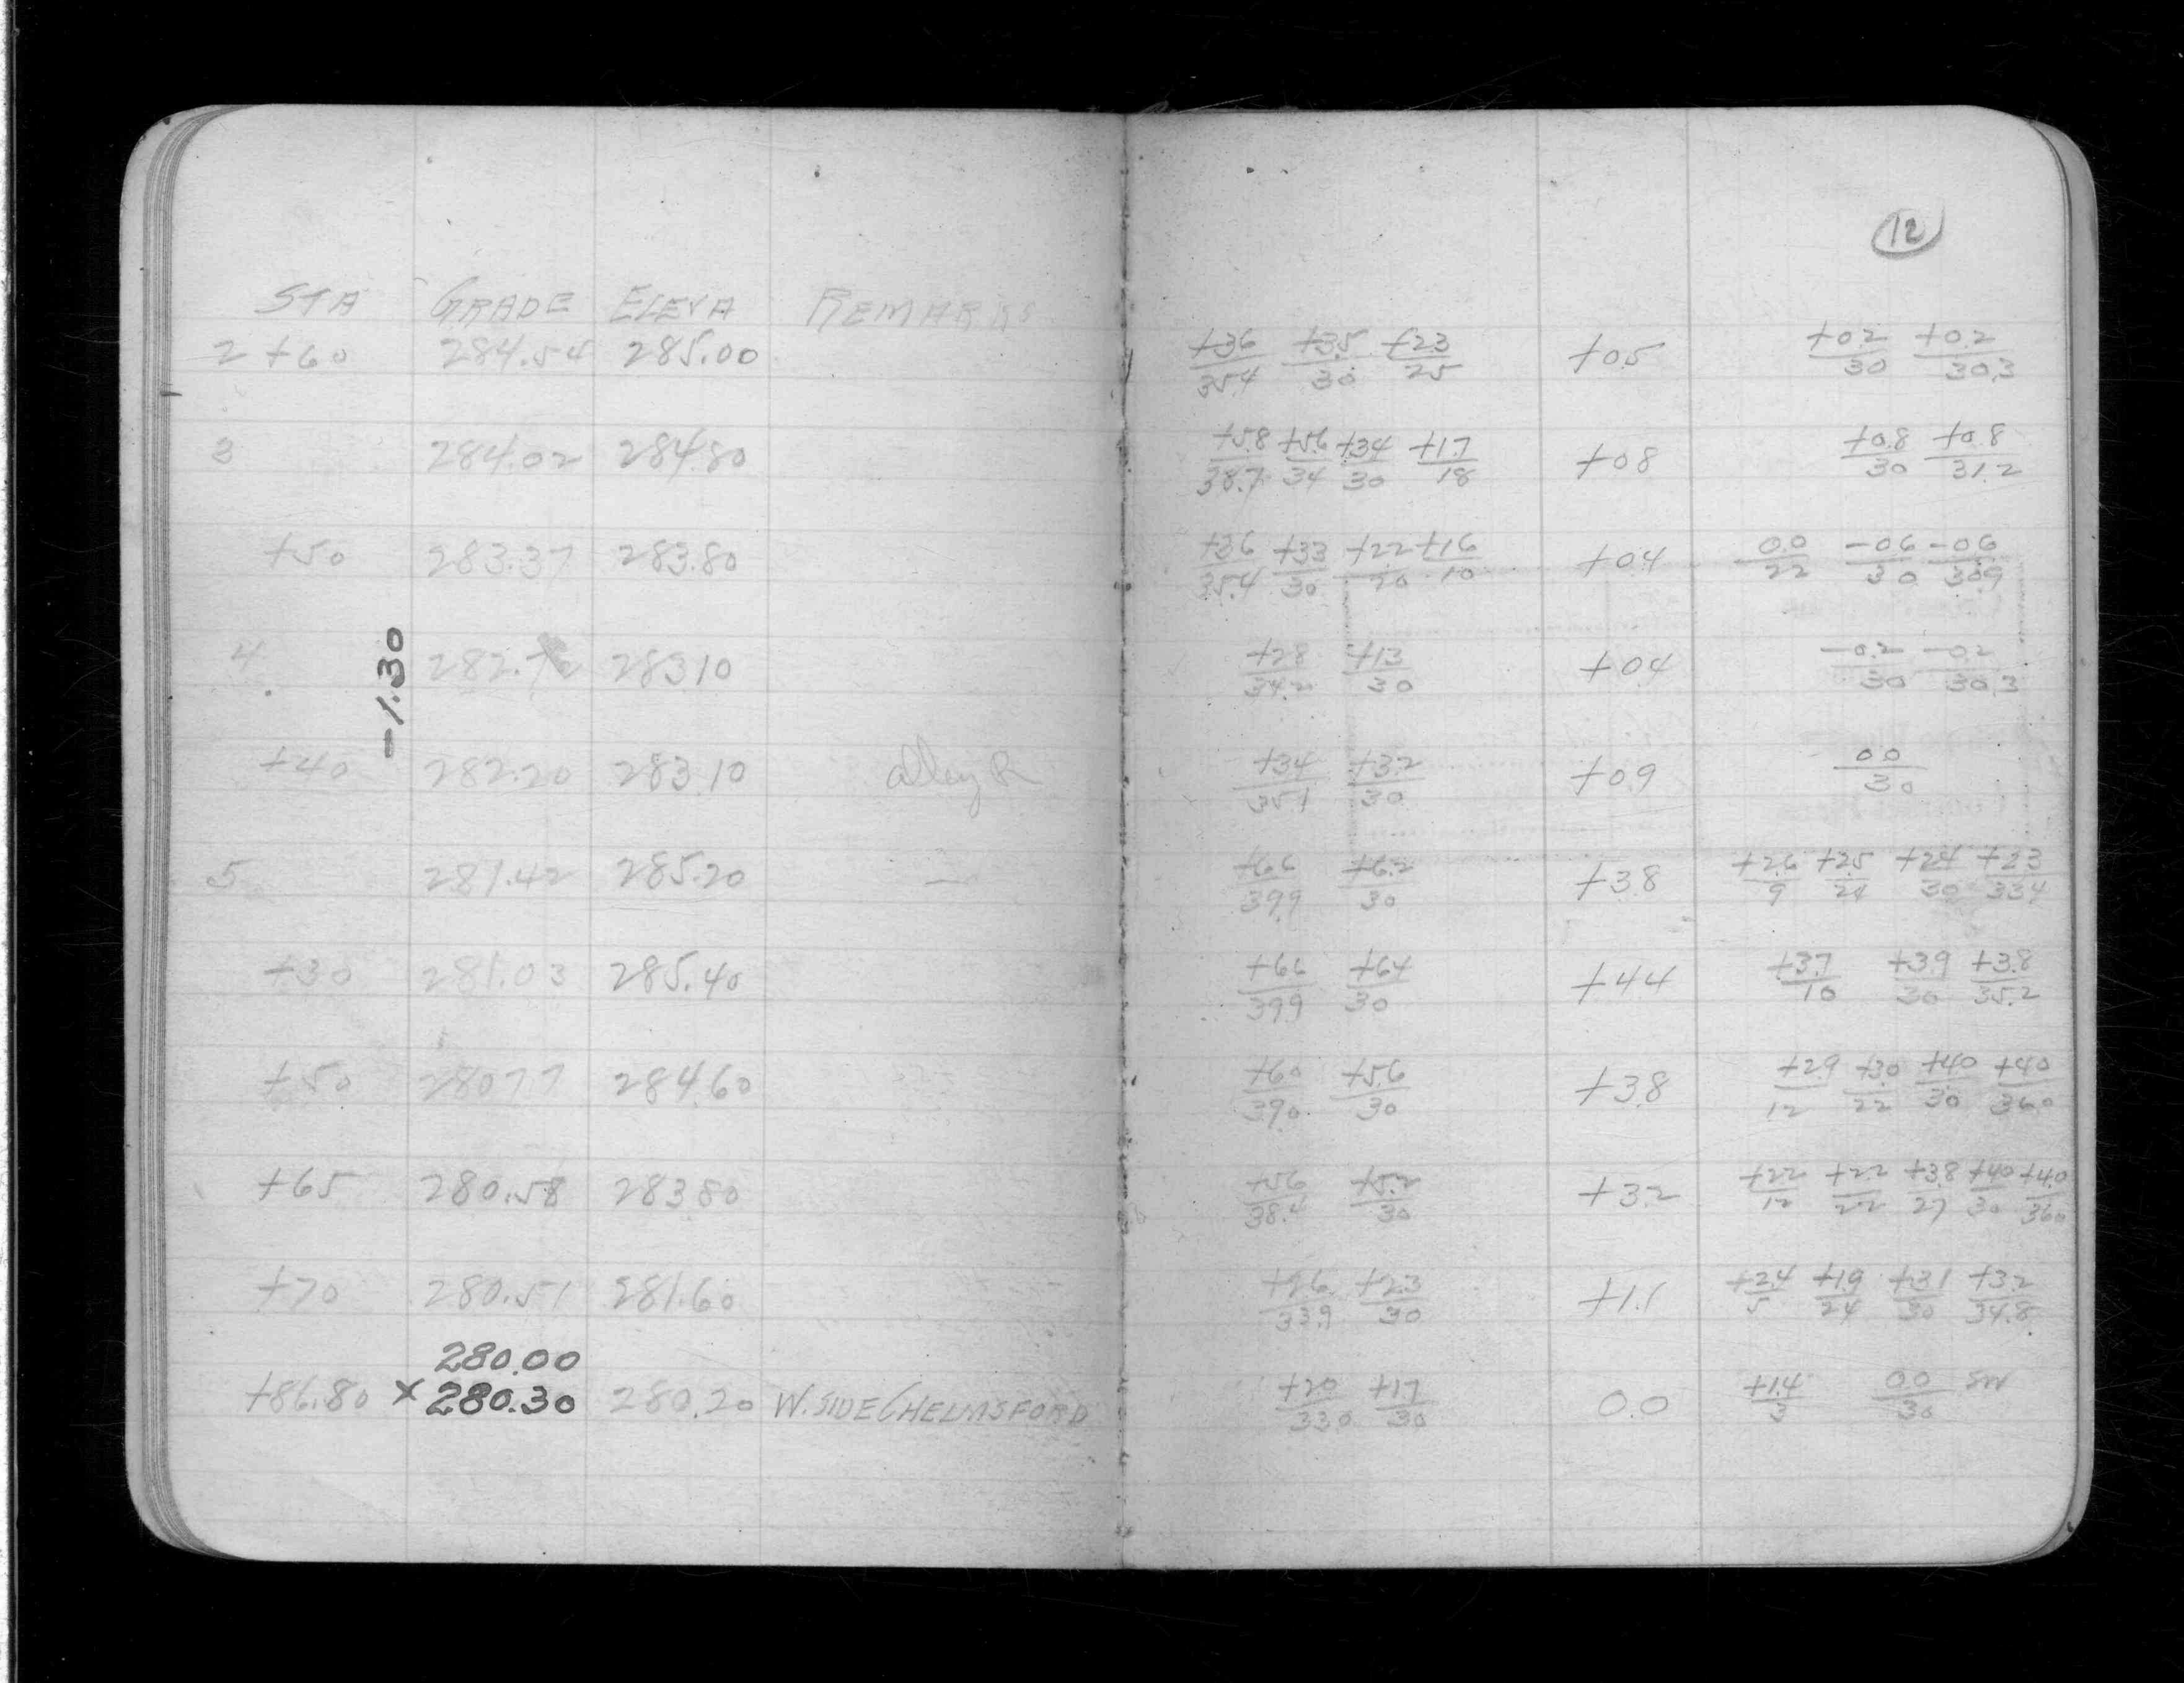 12
STA GRADE ELEVA REMARKS
2 +60 284.54 285.00 +3.6/35.4 +3.5/30 +2.3/25 +0.5 +0.2/30 +0.2/30.3
3 284.02 284.80 +5.8/38.7 +5.6/34 +3.4/30 +1.7/18 +0.8 +0.8/30 +0.8/31.2
+50 283.37 283.80 +3.6/35.4 +3.3/30 +2.2/20 +1.6/10 +0.4 0.0/22 -0.6/30 -0.6/30.9
-1.30
4 283.10 +2.8/34.2 +1.3/30 +0.4 -0.2/30 -0.2/30.3
+40 282.20 283.10 alley R +3.4/35.1 +3.2/30 +0.9 0.0/30
5 281.42 285.20 — +6.6/39.9 +6.2/30 +3.8 +2.6/9 +2.5/24 +2.4/30 +2.3/33.4
+30 281.03 285.40 +6.6/39.9 +6.4/30 +4.4 +3.7/10 +3.9/30 +3.8/35.2
+50 280.77 284.60 +6.0/39.0 +5.6/30 +3.8 +2.9/12 +3.0/22 +4.0/30 +4.0/36.0
+65 280.58 283.80 +5.6/38.4 +5.2/30 +3.2 +2.2/12 +2.2/22 +3.8/27 +4.0/30 +4.0/36.0
+70 280.51 281.60 +2.6/33.9 +2.3/30 +1.1 +2.4/5 +1.9/24 +3.1/30 +3.2/34.8
280.00
+86.80 x 280.30 280.20 W. SIDE CHELMSFORD +2.0/33.0 +1.7/30 0.0 +1.4/3 0.0/30 SW